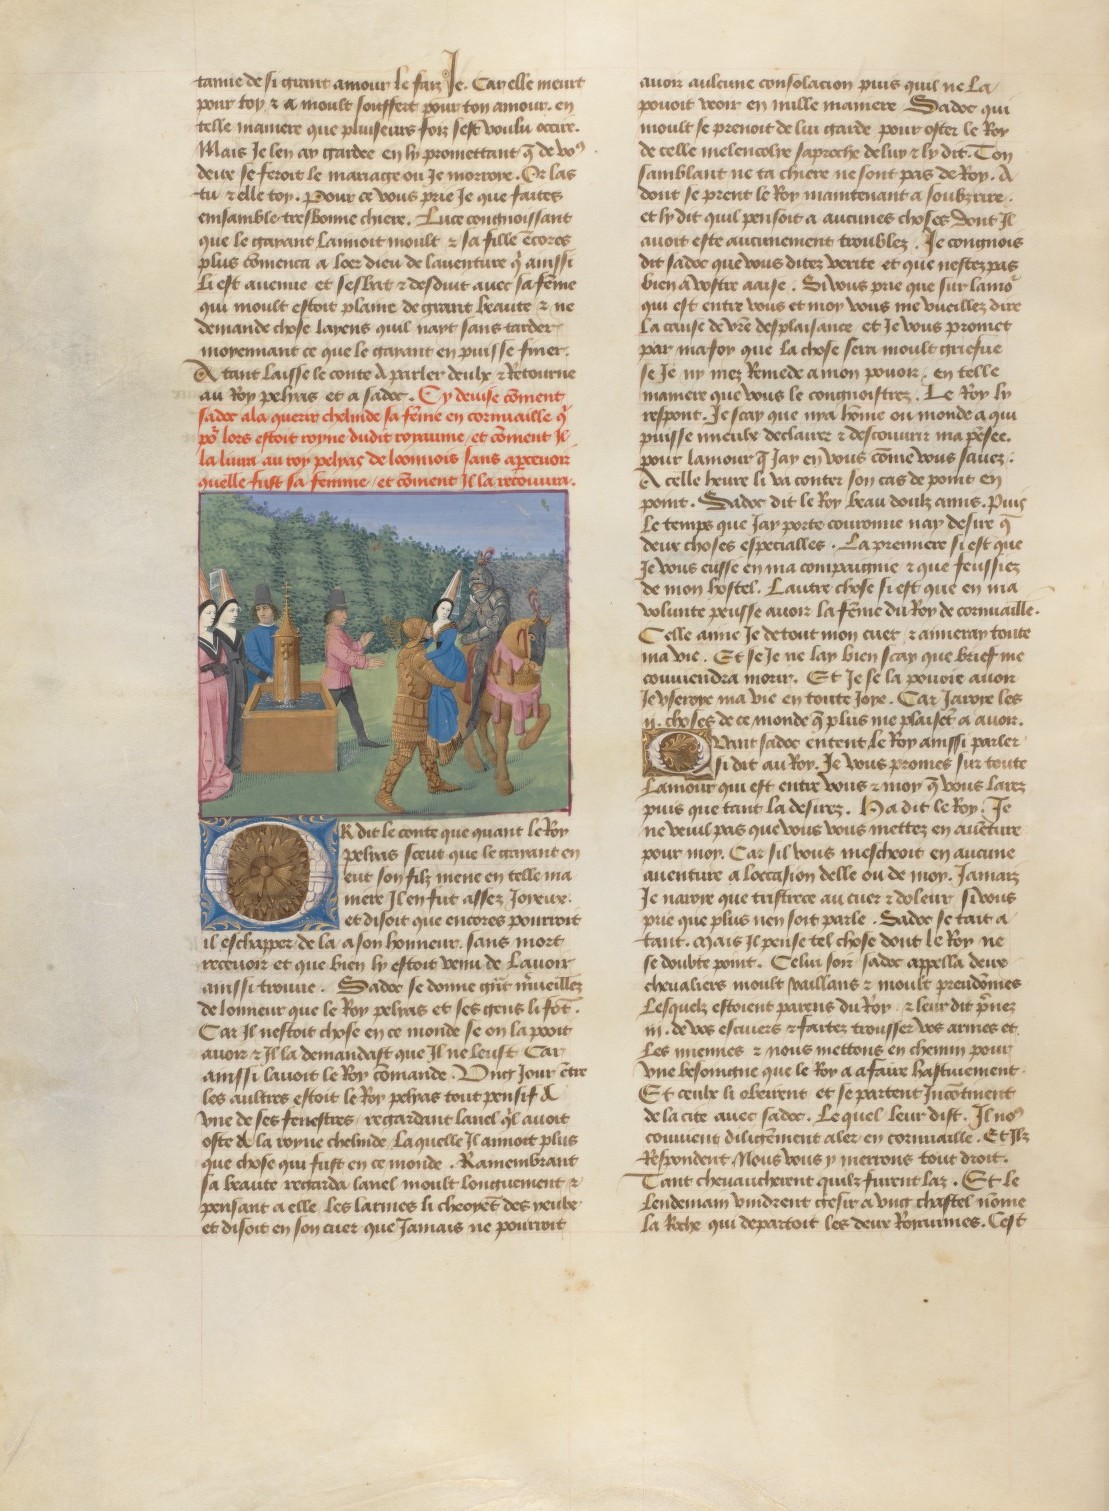 tanne de si grant amour le faiz Je. Car elle meurt
pour toy & a moult souffert pour ton amour. en
telle maniere que pluiseurs foiz sest voulu occire.
Mais Je len ay gardee en ly promettant q̃ de vo9
deux se feroit le mariage ou Je morroye. Or las
tu & elle toy. Pour ce vous prie Je que faites
ensamble tresbonne chiere. Luce congnoissant
que le gayant lamoit moult & sa fille ẽcores
plus cõmenca a loer dieu de lauenture q̃ ainssi
li est auenue et sesbat & desduit auec sa fẽme
qui moult estoit plaine de grant beaute & ne
demande chose layens quil nayt sans tarder
moyennant ce que le gayant en puisse finer.
A tant laisse le conte A parler deulx & Retourne
au Roy pelyas et a sadoc. Cy deuise cõment
sadoc ala querir chelinde sa fẽme en cornuaille q̃
po᷑ lors estoit royne dudit royaume et cõment Il
la liura au roy pelyas de loonnois sans apercevoir
quelle fust sa femme et cõment Il la recouura.
OR dit le conte que quant le Roy
pelyas sceut que le gayant en
eut son filz mene en telle ma
niere Il en fut assez Joyeux.
et disoit que encores pourroit
il eschapper de la a son honneur. sans mort
receuoir et que bien ly estoit venu de lauoir
ainssi trouue. Sadoc se donne gñt m̃ueillez
de lonneur que le Roy pelyas et ses gens li fõt.
Car Il nestoit chose en ce monde se on la poit
auoir & Il la demandast que Il ne leust Car
ainssi lauoit le Roy cõmande. Ung Jour ẽtre
les aultres estoit le Roy pelyas tout pensif A
vne de ses fenestres regardant lanel q̃l auoit
oste de la royne chelinde. laquelle Il amoit plus
que chose qui fust en ce monde. Ramembrant
sa beaute regarda lanel moult longuement &
pensant a elle les larmes li cheoyẽt des yeulx
et disoit en son cuer que Jamais ne pourroit
auoir aulcune consolacion puis quil ne la
pouoit veoir en nulle maniere Sadoc qui
moult se prenoit de lui garde pour oster le Roy
de celle melencolye saproche de luy & ly dit. Ton
samblant ne ta chiere ne sont pas de Roy. A
dont se prent le Roy maintenant a soubzrire.
et ly dit quil pensoit a aucunes choses Dont Il
auoit este aucunement troublez. Je congnois
dit sadoc que vous ditez verite et que nestez pas
bien a vostre aaise. Si vous prie que sur lamo᷑
qui est entre vous et moy vous me vueillez dire
la cause de vr̃e desplaisance et Je vous promet
par ma foy que la chose sera moult griefue
se Je ny mez Remede a mon pouoir. en telle
maniere que vous le congnoistrez. Le Roy ly
respont. Je scay que nya hõme ou monde a qui
puisse mieulx declairer & descouurir ma pẽsee.
pour lamour q̃ Jay en vous cõme vous sauez.
A celle heure li va conter son cas de point en
point. Sadoc dit le Roy beau doulx amis. Puis
le temps que Jay porte couronne nay desire q̃
deux choses especialles. La premiere si est que
Je vous eusse en ma compaignie & que feussiez
de mon hostel. Lautre chose si est que en ma
volunte peusse auoir la fẽme du Roy de cornuaille.
Celle aime Je de tout mon cuer & aimeray toute
ma vie. Et se Je ne lay bien scay que brief me
conuiendra morir. Et Je se la pouoie auoir
Je vseroye ma vie en toute Joye. Car Jaroye les
.ij. choses de ce monde q̃ plus me plaisẽt a auoir.
Quant sadoc entent le Roy ainssi parler
si dit au Roy. Je vous promes sur toute
lamour qui est entre vous & moy q̃ vous larez
puis que tant la desirez. Ha dit le Roy. Je
ne veuil pas que vous vous mettez en auẽture
pour moy. Car sil vous mescheoit en aucune
auenture a loccasion delle ou de moy. Jamaiz
Je naroye que tristrece au cuer & doleur. si vous
prie que plus nen soit parle. Sadoc se tait a
tant. Mais Il pense tel chose dont le Roy ne
se doubte point. Celui soir sadoc appella deux
cheualiers moult vaillans & moult preudõmes
lesquelz estoient parens du Roy. & leur dit p̃nez
.iij. de vos escuiers & faitez trousser vos armes et
les miennes & nous mettons en chemin pour
vne besoingne que le Roy a a faire hastiuement.
Et ceulx li obeirent et se partent Incõtinent
de la cite auec sadoc. Lequel leur dist. Il no9
conuient diligẽment aler en cornuaille. Et Ilz
Respondent Nous vous y menrons tout droit.
Tant cheuaucherent quilz furent laz. Et le
lendemain vindrent gesir a vng chastel nõme
la Roche qui departoit les deux Royaumes. Cest